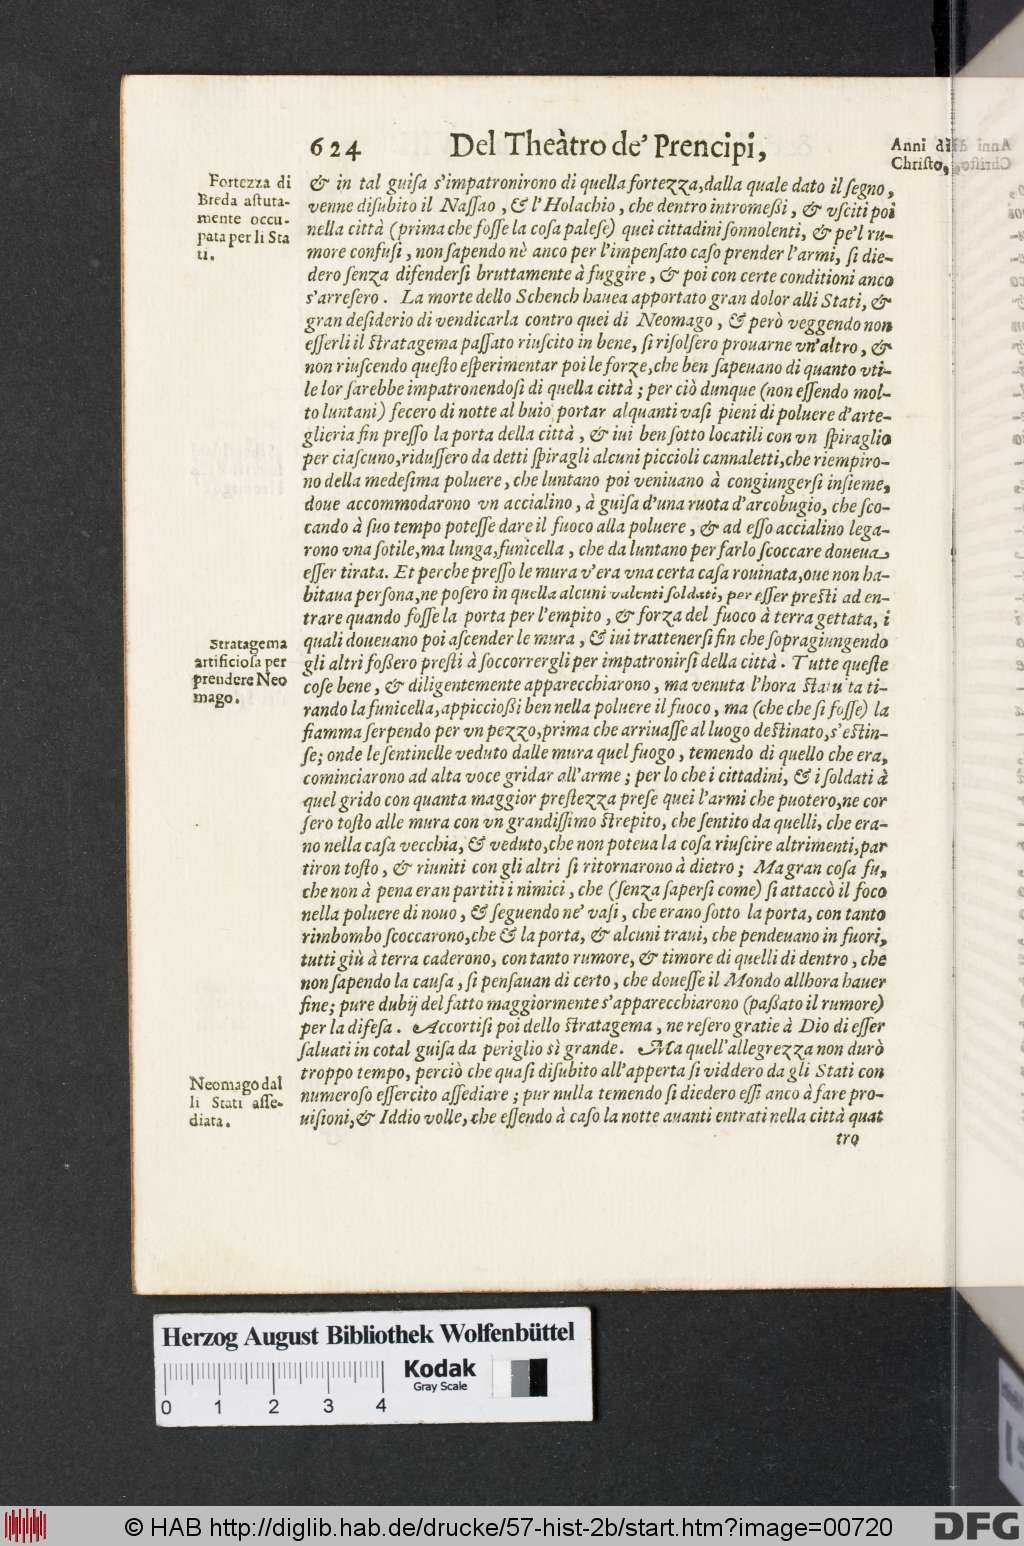 624 Del Theàtro de' Prencipi, Anni di
Christo,
Fortezza di
Breda astuta-
mente occu-
pata per li Sta
ti.
& in tal guisa s'impatronirono di quella fortezza,dalla quale dato il segno,
venne disubito il Nassao, & l'Holachio, che dentro intromeßi, & vsciti poi
nella città (prima che fosse la cosa palese) quei cittadini sonnolenti, & pe'l ru-
more confusi, non sapendo nè anco per l'impensato caso prender l'armi, si die-
dero senza difendersi bruttamente à fuggire, & poi con certe conditioni anco
s'arresero. La morte dello Schench hauea apportato gran dolor alli Stati, &
gran desiderio di vendicarla contro quei di Neomago, & però veggendo non
esserli il stratagema passato riuscito in bene, si risolsero prouarne vn'altro, &
non riuscendo questo esperimentar poi le forze,che ben sapeuano di quanto vti-
le lor sarebbe impatronendosi di quella città; per ciò dunque (non essendo mol-
to luntani) fecero di notte al buio portar alquanti vasi pieni di poluere d'arte-
glieria fin presso la porta della città, & iui ben sotto locatili con vn spiraglio
per ciascuno,ridussero da detti spiragli alcuni piccioli cannaletti,che riempiro-
no della medesima poluere, che luntano poi veniuano à congiungersi insieme,
doue accommodarono vn accialino, à guisa d'una ruota d'arcobugio, che sco-
cando à suo tempo potesse dare il fuoco alla poluere, & ad esso accialino lega-
rono vna sotile,ma lunga,funicella, che da luntano per farlo scoccare doueua
esser tirata. Et perche presso le mura v'era vna certa casa rouinata,oue non ha-
bitaua persona,ne posero in quella alcuni valenti soldati, per esser presti ad en-
trare quando fosse la porta per l'empito, & forza del fuoco à terra gettata, i
Stratagema
artificiosa per
prendere Neo
mago.
quali doueuano poi ascender le mura, & iui trattenersi fin che sopragiungendo
gli altri foßero presti à soccorrergli per impatronirsi della città. Tutte queste
cose bene, & diligentemente apparecchiarono, ma venuta l'hora statuita ti-
rando la funicella,appiccioßi ben nella poluere il fuoco, ma (che che si fosse) la
fiamma serpendo per vn pezzo,prima che arriuasse al luogo destinato,s'estin-
se; onde le sentinelle veduto dalle mura quel fuogo, temendo di quello che era,
cominciarono ad alta voce gridar all'arme; per lo che i cittadini, & i soldati à
quel grido con quanta maggior prestezza prese quei l'armi che puotero,ne cor
sero tosto alle mura con vn grandissimo strepito, che sentito da quelli, che era-
no nella casa vecchia, & veduto,che non poteua la cosa riuscire altrimenti,par
tiron tosto, & riuniti con gli altri si ritornarono à dietro; Ma gran cosa fu,
che non à pena eran partiti i nimici, che (senza sapersi come) si attaccò il foco
nella poluere di nouo, & seguendo ne' vasi, che erano sotto la porta, con tanto
rimbombo scoccarono,che & la porta, & alcuni traui, che pendeuano in fuori,
tutti giù à terra caderono, con tanto rumore, & timore di quelli di dentro, che
non sapendo la causa, si pensauan di certo, che douesse il Mondo allhora hauer
fine; pure dubij del fatto maggiormente s'apparecchiarono (paßato il rumore)
per la difesa. Accortisi poi dello stratagema, ne resero gratie à Dio di esser
saluati in cotal guisa da periglio sì grande. Ma quell'allegrezza non durò
Neomago dal
li Stati asse-
diata.
troppo tempo, perciò che quasi disubito all'apperta si viddero da gli Stati con
numeroso essercito assediare; pur nulla temendo si diedero essi anco à fare pro-
uisioni,& Iddio volle, che essendo à caso la notte auanti entrati nella città quat
tro
Herzog August Bibliothek Wolfenbüttel
Kodak
Gray Scale
0 1 2 3 4
© HAB http://diglib.hab.de/drucke/57-hist-2b/start.htm?image=00720
DFG